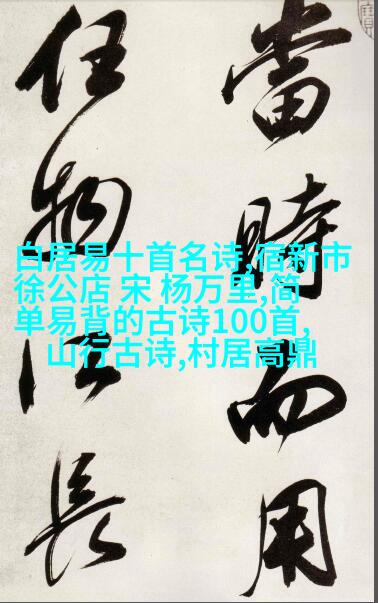 當時而用
任物以長
白居易十首名诗,宿新市
徐公店 宋 杨万里,简
单易背的古诗100首,
山行古诗,村居高鼎